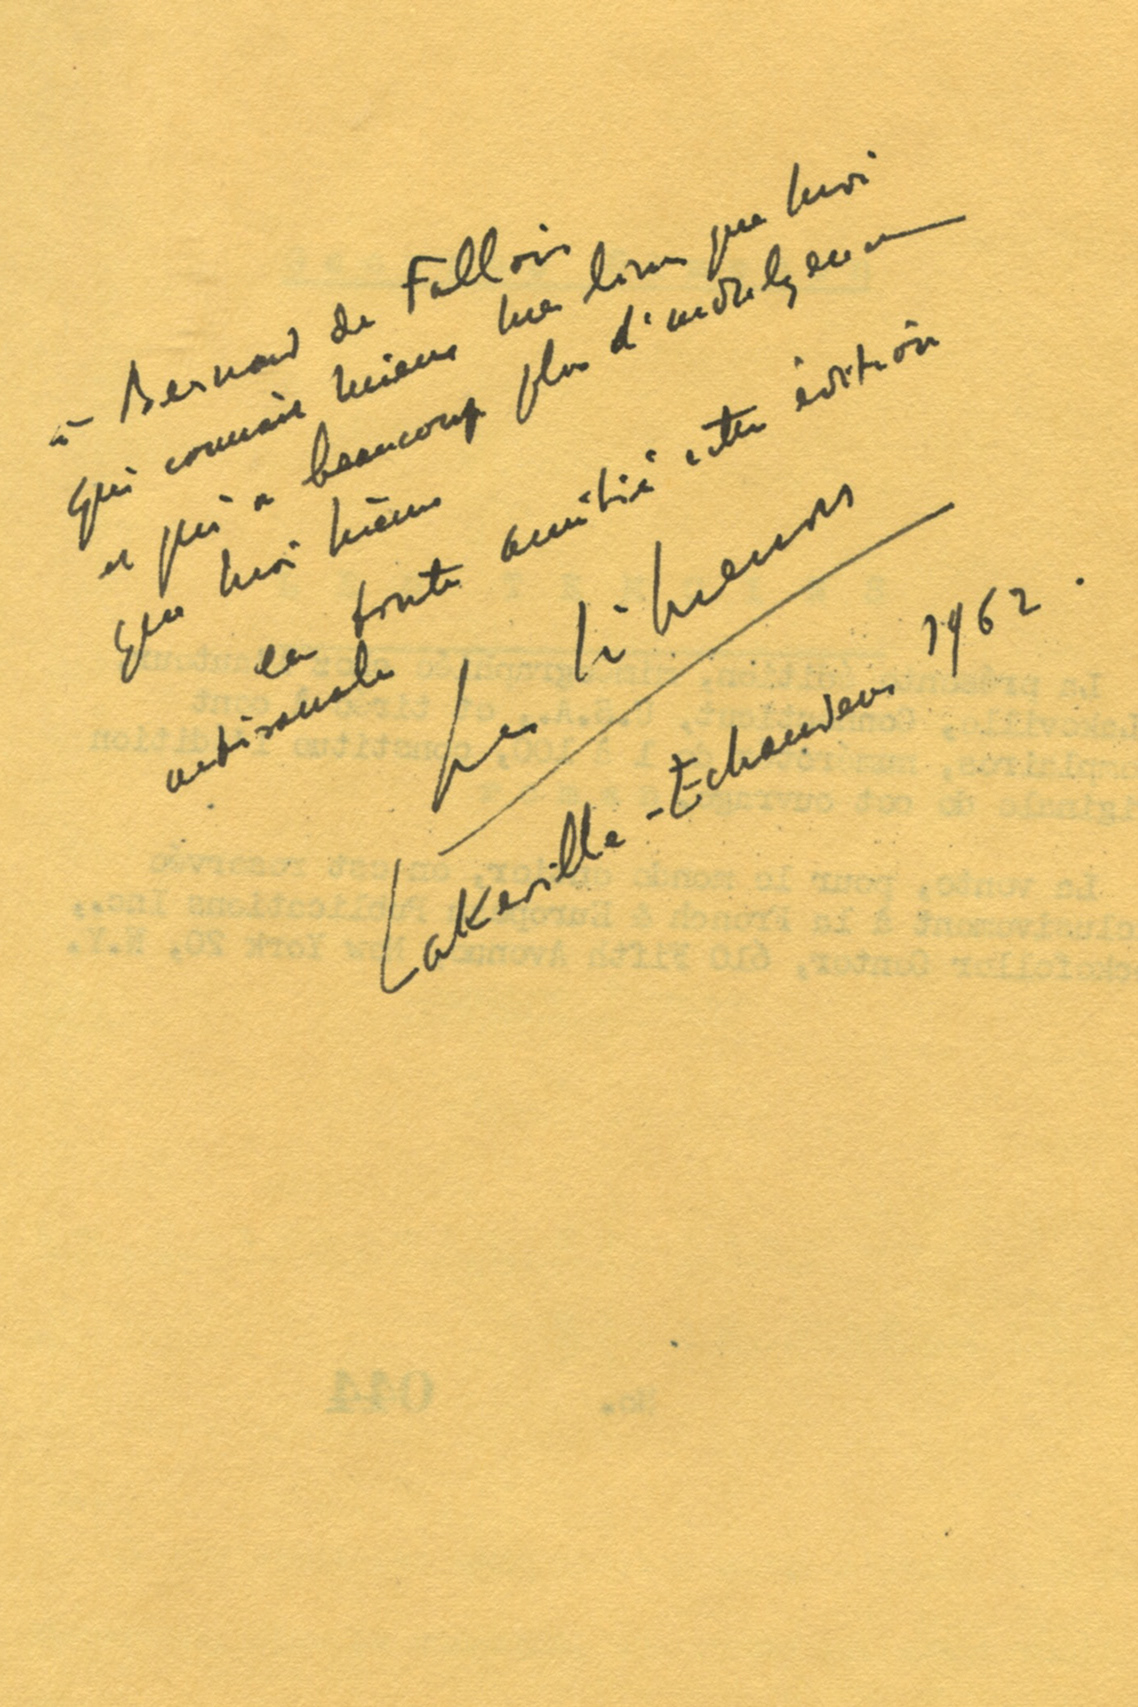 à Bernard de Fallois
qui connaît mieux mes livres que moi
et qui a beaucoup plus d'indulgence
que moi même
en toute amitié cette édition
artisanale
Ges Simenon
Lakeville - Echandens 1962.
La présente édition,
Lakeville, Connecticut, U.S.A., et tirée à cent
emplaires, numérotés de 1 à 100, constitue l'édition
iginale de cet ouvrage
La vente, pour le monde entier, en est réservée
clusivement à la French & European Publications Inc.,
ckefeller Center, 610 Fifth Avenue, New York 20, N.Y.
No. 044